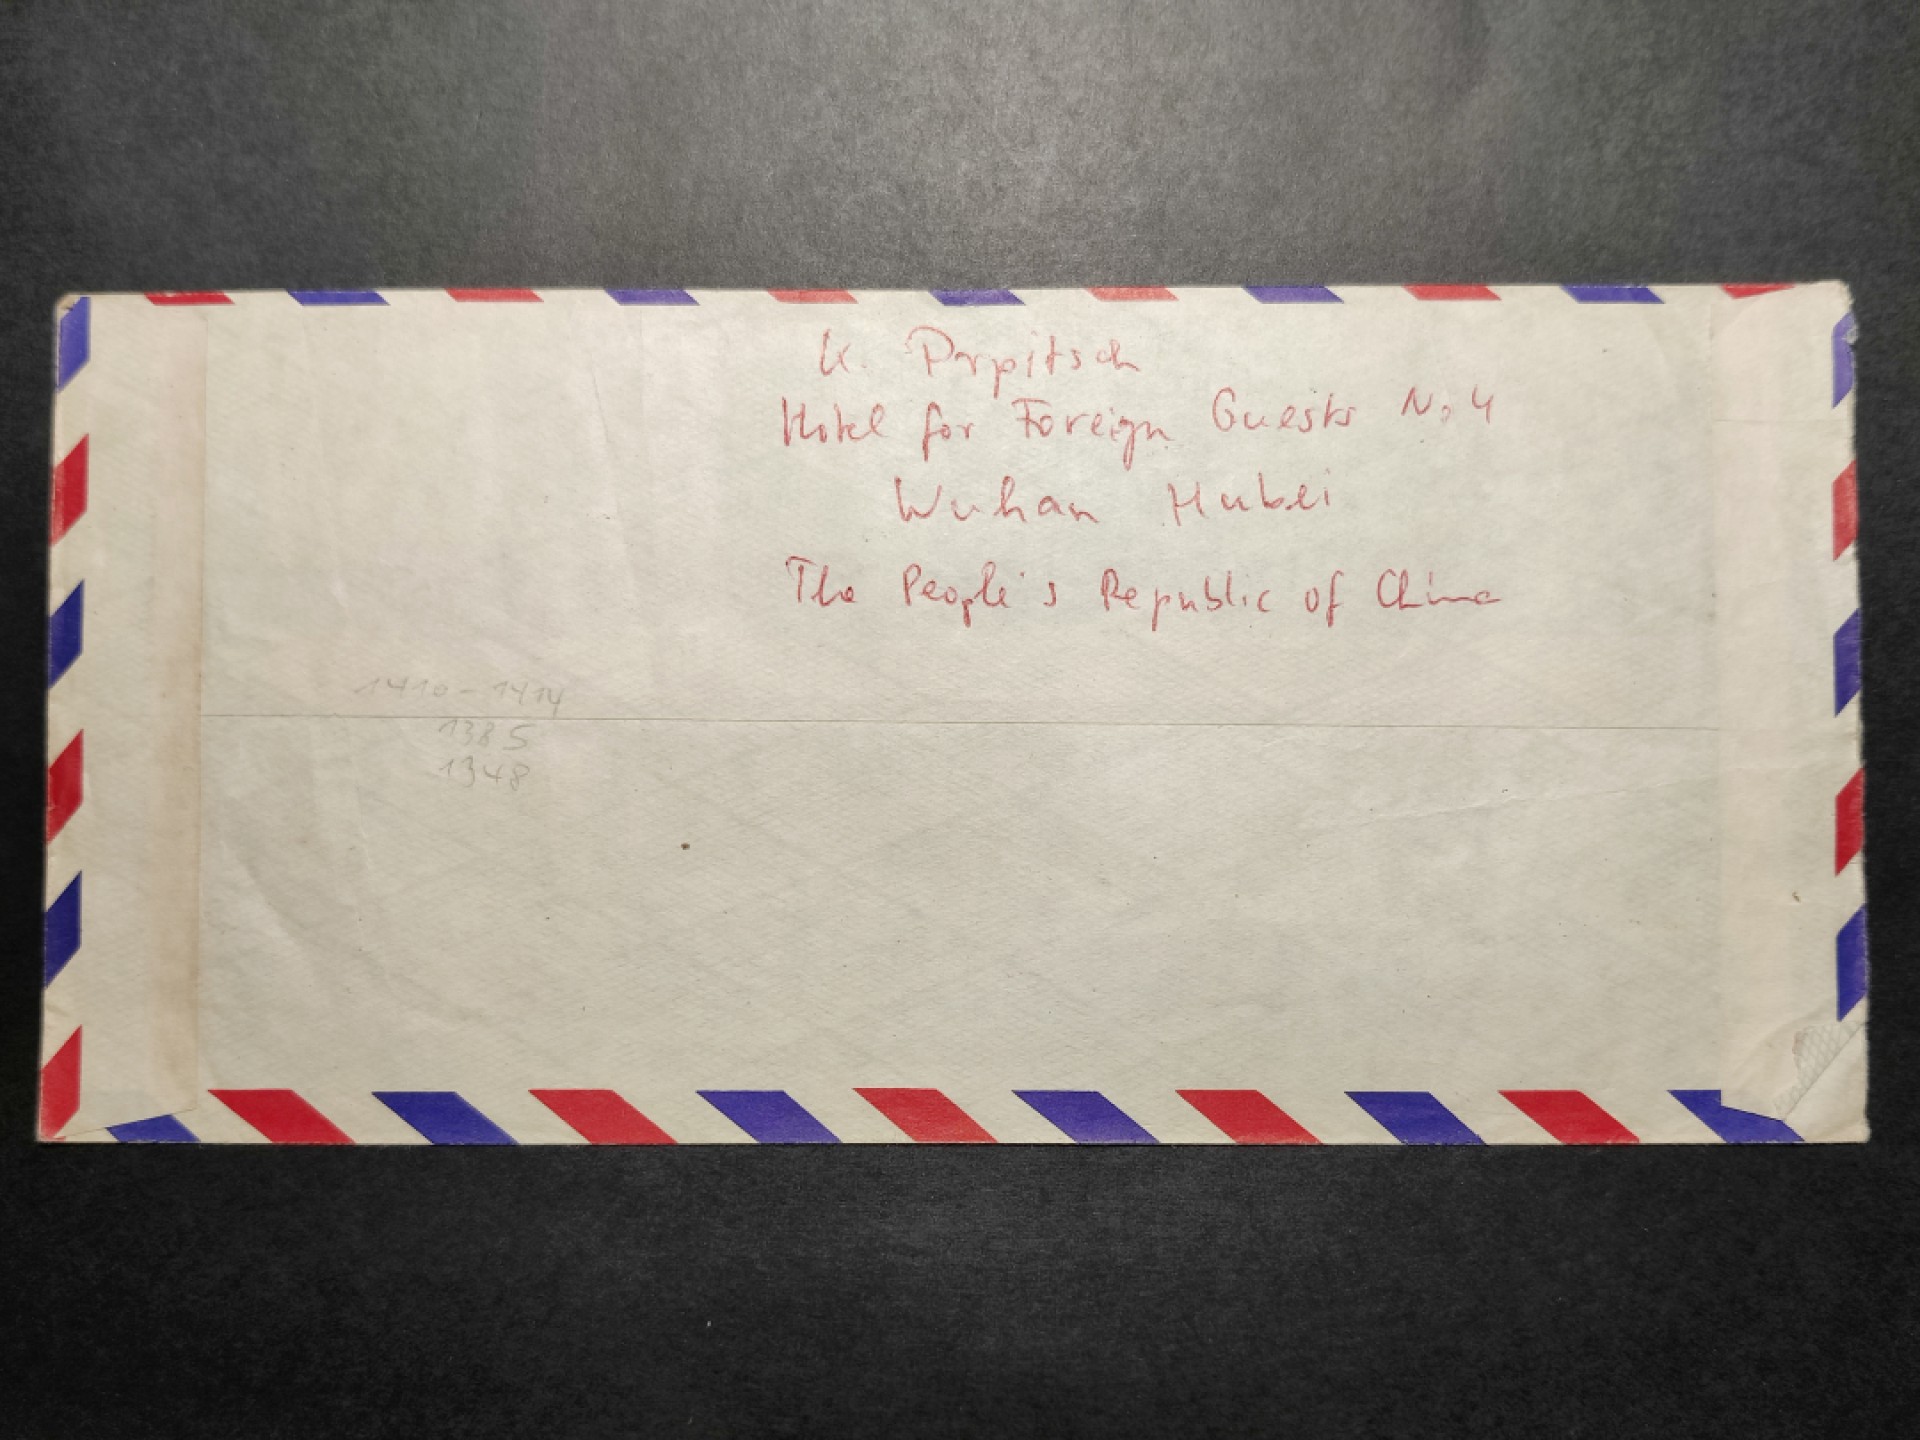 K. Prpitsch
Hotel for Foreign Guests No 4
Wuhan Hubei
The People's Republic of China
1410 - 1414
1385
1348